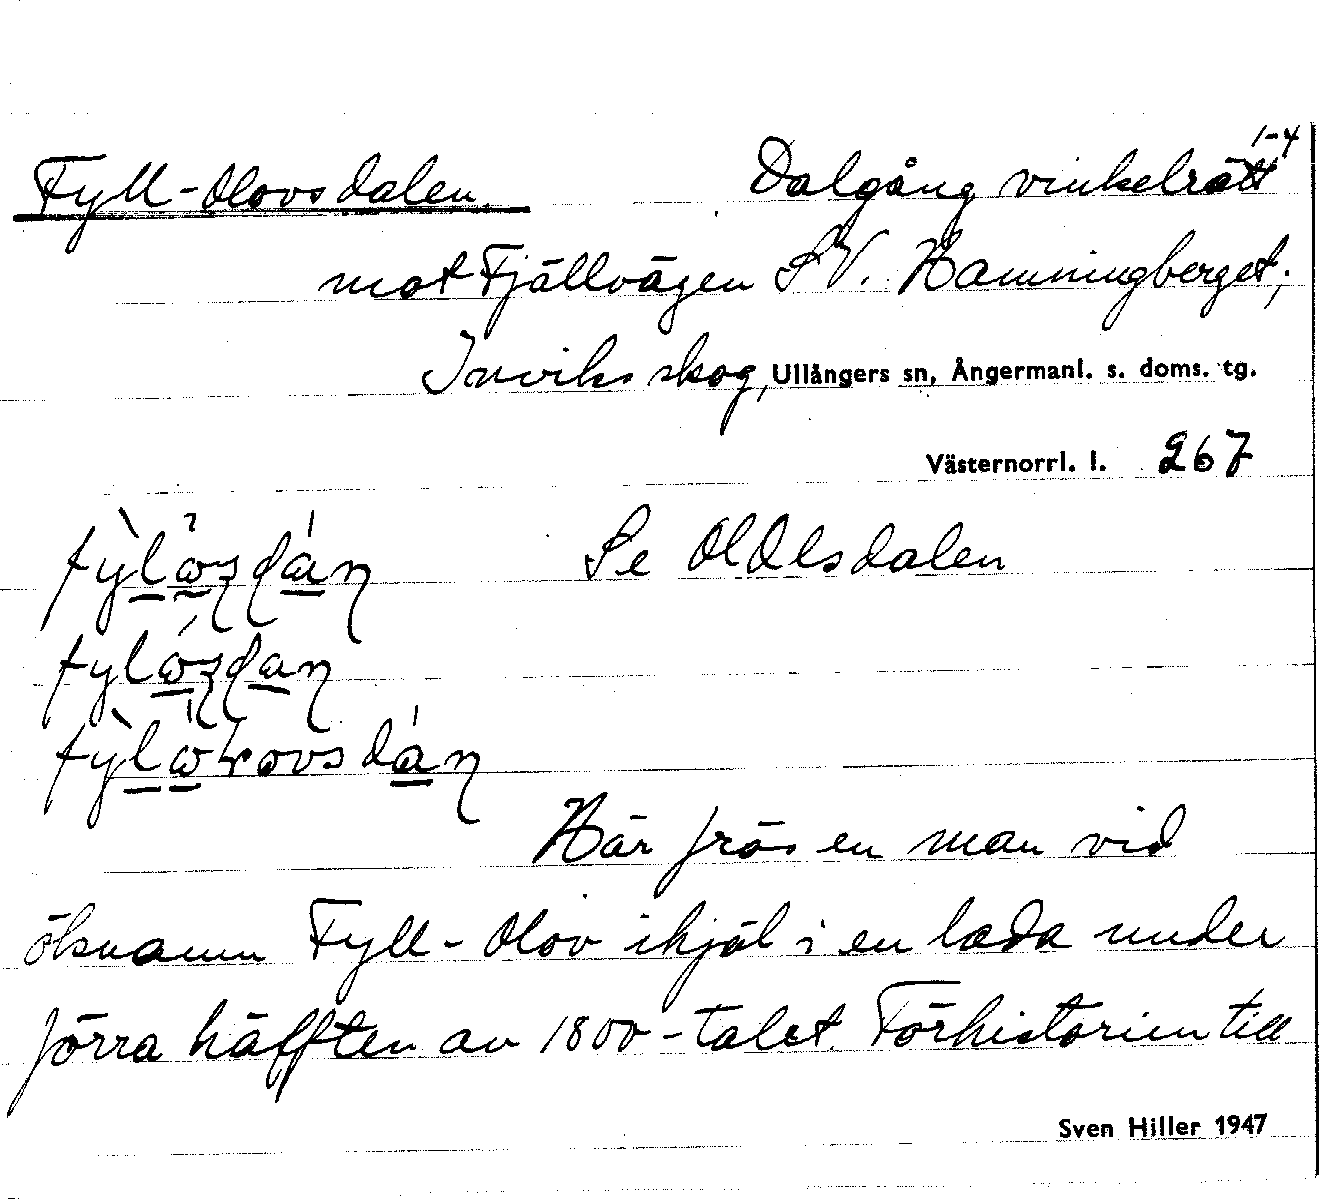 1-4
Fyll-Olovsdalen. Dalgång vinkelrätt
mot Fjällvägen SV. Hamningberget;
Inviks skog, Ullångers sn, Ångermanl. s. doms. tg.
Västernorrl. l. 267
Se OlOlsdalen
Här frös en man vid
öknamn Fyll-Olov ihjäl i en lada under
förra häfften av 1800-talet. Förhistorien till
Sven Hiller 1947